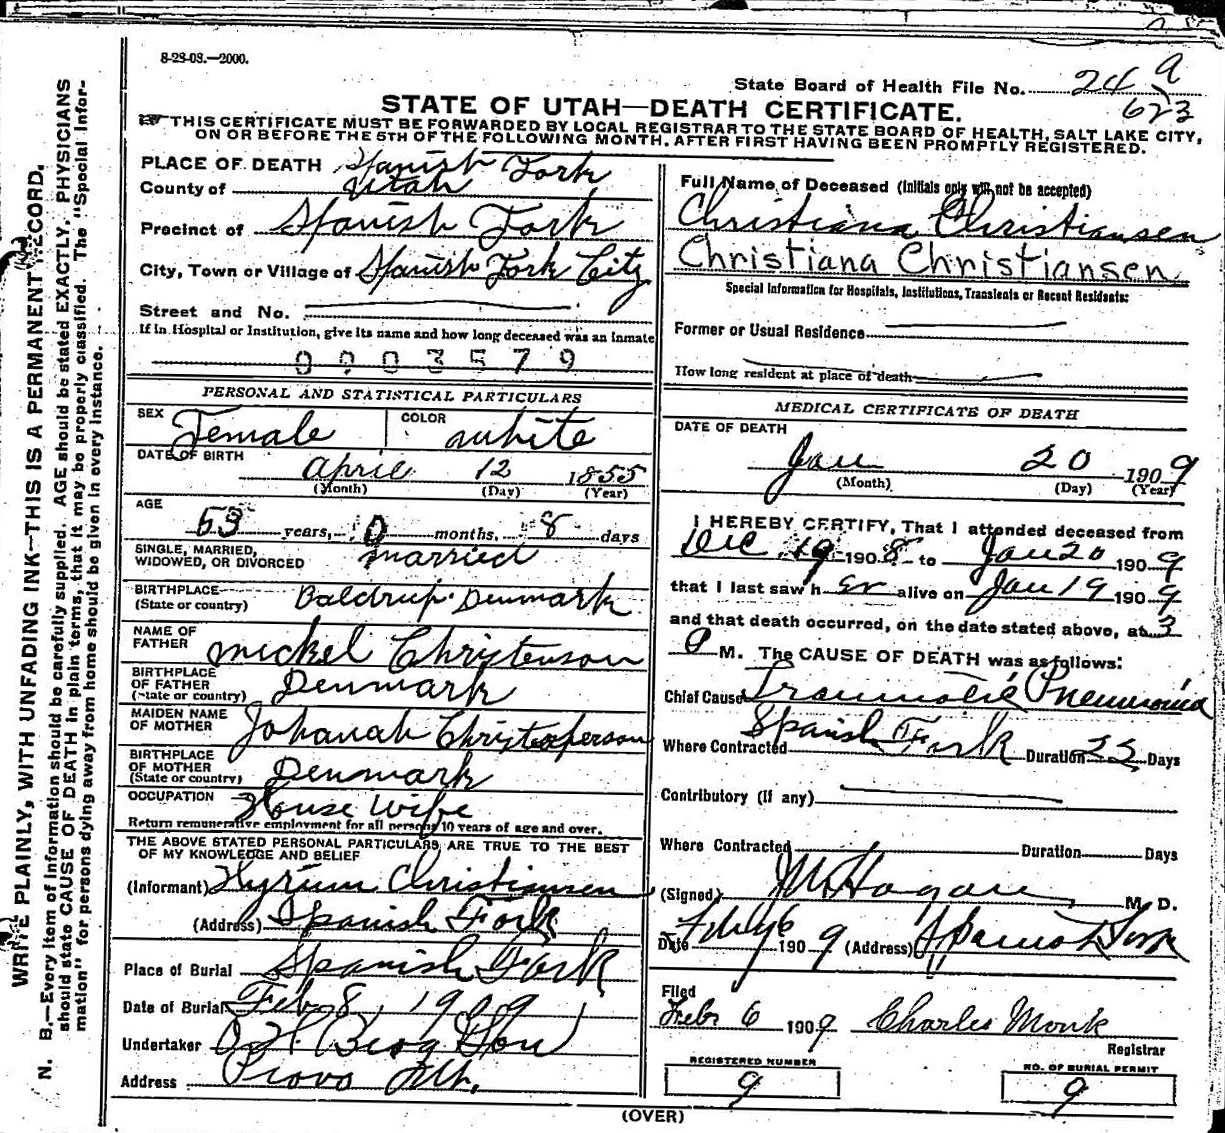 8-23-03.—2000.
State Board of Health File No. 24 9
623
STATE OF UTAH—DEATH CERTIFICATE.
THIS CERTIFICATE MUST BE FORWARDED BY LOCAL REGISTRAR TO THE STATE BOARD OF HEALTH, SALT LAKE CITY,
ON OR BEFORE THE 5TH OF THE FOLLOWING MONTH, AFTER FIRST HAVING BEEN PROMPTLY REGISTERED.
WRITE PLAINLY, WITH UNFADING INK—THIS IS A PERMANENT RECORD.
N. B.—Every item of information should be carefully supplied. AGE should be stated EXACTLY. PHYSICIANS
should state CAUSE OF DEATH in plain terms, that it may be properly classified. The "Special Infor-
mation" for persons dying away from home should be given in every instance.
PLACE OF DEATH Spanish Fork
County of Utah
Precinct of Spanish Fork
City, Town or Village of Spanish Fork City
Street and No.
If in Hospital or Institution, give its name and how long deceased was an inmate
0003579
PERSONAL AND STATISTICAL PARTICULARS
SEX Female COLOR white
DATE OF BIRTH April 12 1855
(Month) (Day) (Year)
AGE
53 years, 0 months, 8 days
SINGLE, MARRIED,
WIDOWED, OR DIVORCED married
BIRTHPLACE
(State or country) Baldrup Denmark
NAME OF
FATHER Mickel Christenson
BIRTHPLACE
OF FATHER
(State or country) Denmark
MAIDEN NAME
OF MOTHER Johanah Christopherson
BIRTHPLACE
OF MOTHER
(State or country) Denmark
OCCUPATION House Wife
Return remunerative employment for all persons 10 years of age and over.
THE ABOVE STATED PERSONAL PARTICULARS ARE TRUE TO THE BEST
OF MY KNOWLEDGE AND BELIEF
(Informant) Hyrum Christiansen
(Address) Spanish Fork
Place of Burial Spanish Fork
Date of Burial Feb 8, 1909
Undertaker Berg & Son
Address Provo Ut.
Full Name of Deceased (Initials only will not be accepted)
Christiana Christiansen
Christiana Christiansen
Special Information for Hospitals, Institutions, Transients or Recent Residents:
Former or Usual Residence
How long resident at place of death
MEDICAL CERTIFICATE OF DEATH
DATE OF DEATH
Jan 20 1909
(Month) (Day) (Year)
I HEREBY CERTIFY, That I attended deceased from
Dec 19 1908 to Jan 20 1909
that I last saw her alive on Jan 19 1909
and that death occurred, on the date stated above, at 3
M. The CAUSE OF DEATH was as follows:
Chief Cause Traumatic Pneumonia
Where Contracted Spanish Fork Duration Days
Contributory (If any)
Where Contracted Duration Days
(Signed) Hagan M. D.
Date 1909 (Address) Spanish Fork
Filed
Febr 6 1909 Charles Monk
Registrar
REGISTERED NUMBER
9
NO. OF BURIAL PERMIT
9
(OVER)